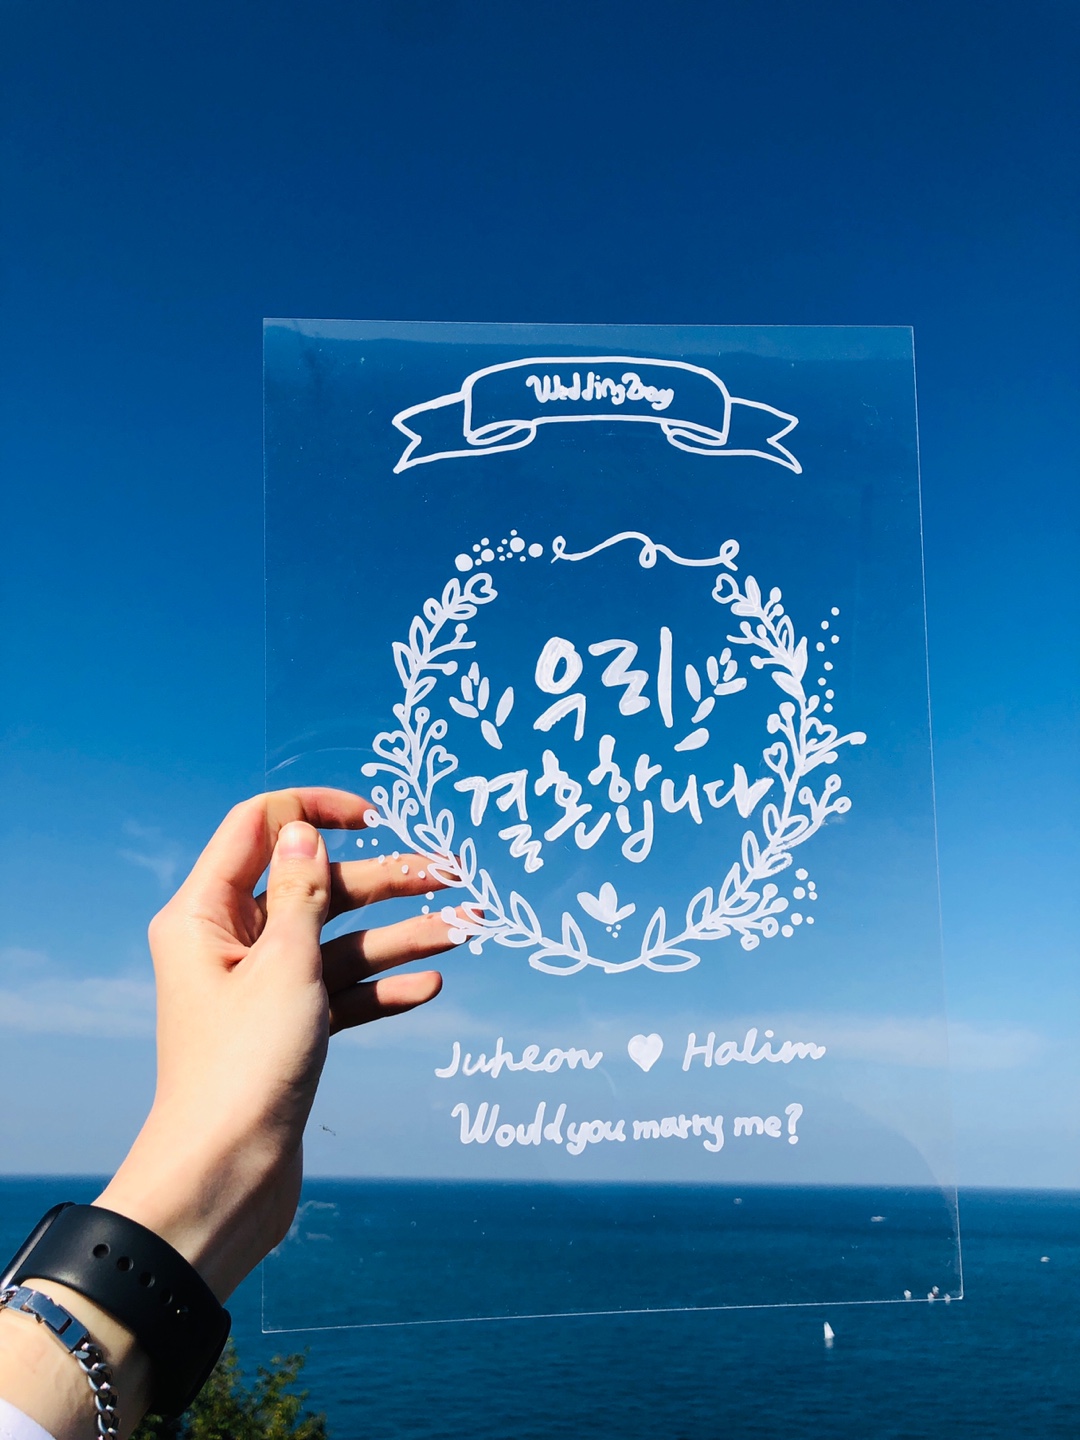 Wedding Day
우리
결혼합니다
Juheon ♥ Halim
Would you marry me?